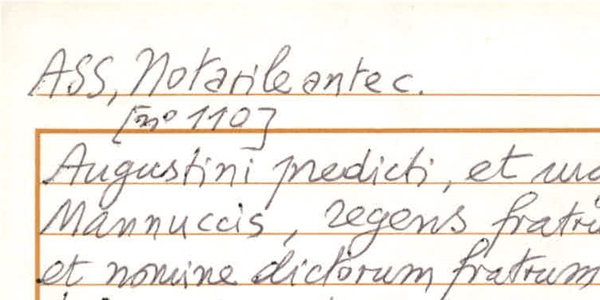 ASS, Notarile antec.
[nº 110]
Augustini predicti, et
Mannuccis, regens
et nomine dictorum fratrum